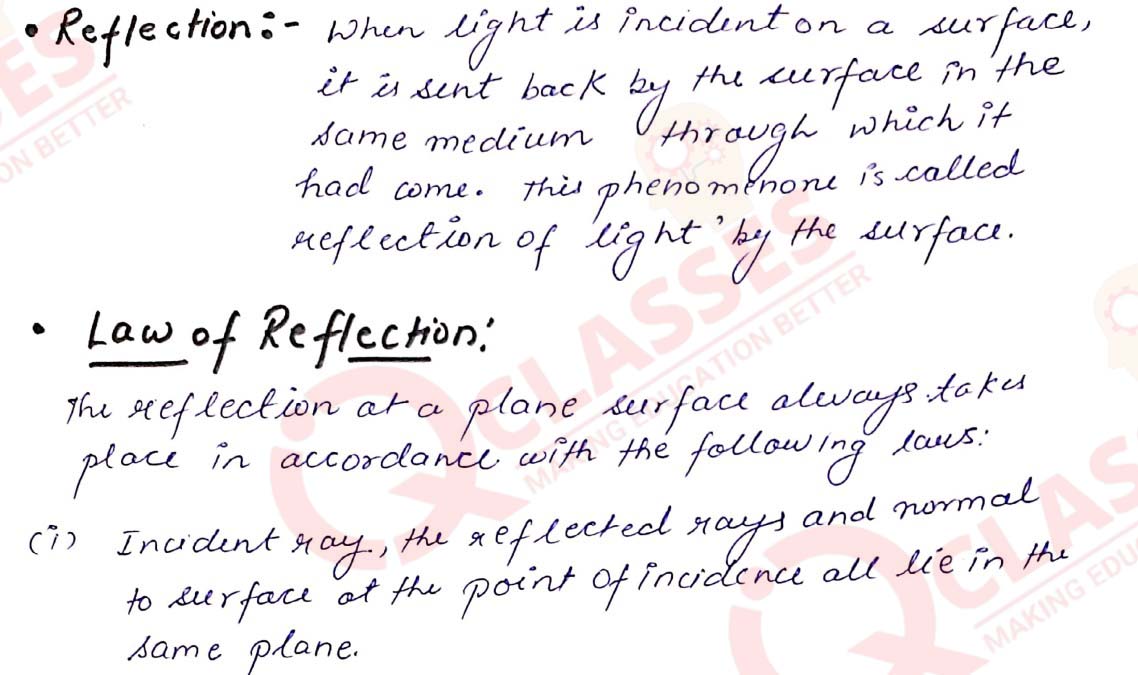 • Reflection :- When light is incident on a surface,
it is sent back by the surface in the
same medium through which it
had come. This phenomenone is called
reflection of light by the surface.
• Law of Reflection:
The reflection at a plane surface always takes
place in accordance with the following laws:
(i) Incident ray., the reflected rays and normal
to surface at the point of incidence all lie in the
same plane.
ES
ON BETTER
iQ CLASSES
MAKING EDUCATION BETTER
CLAS
MAKING EDU